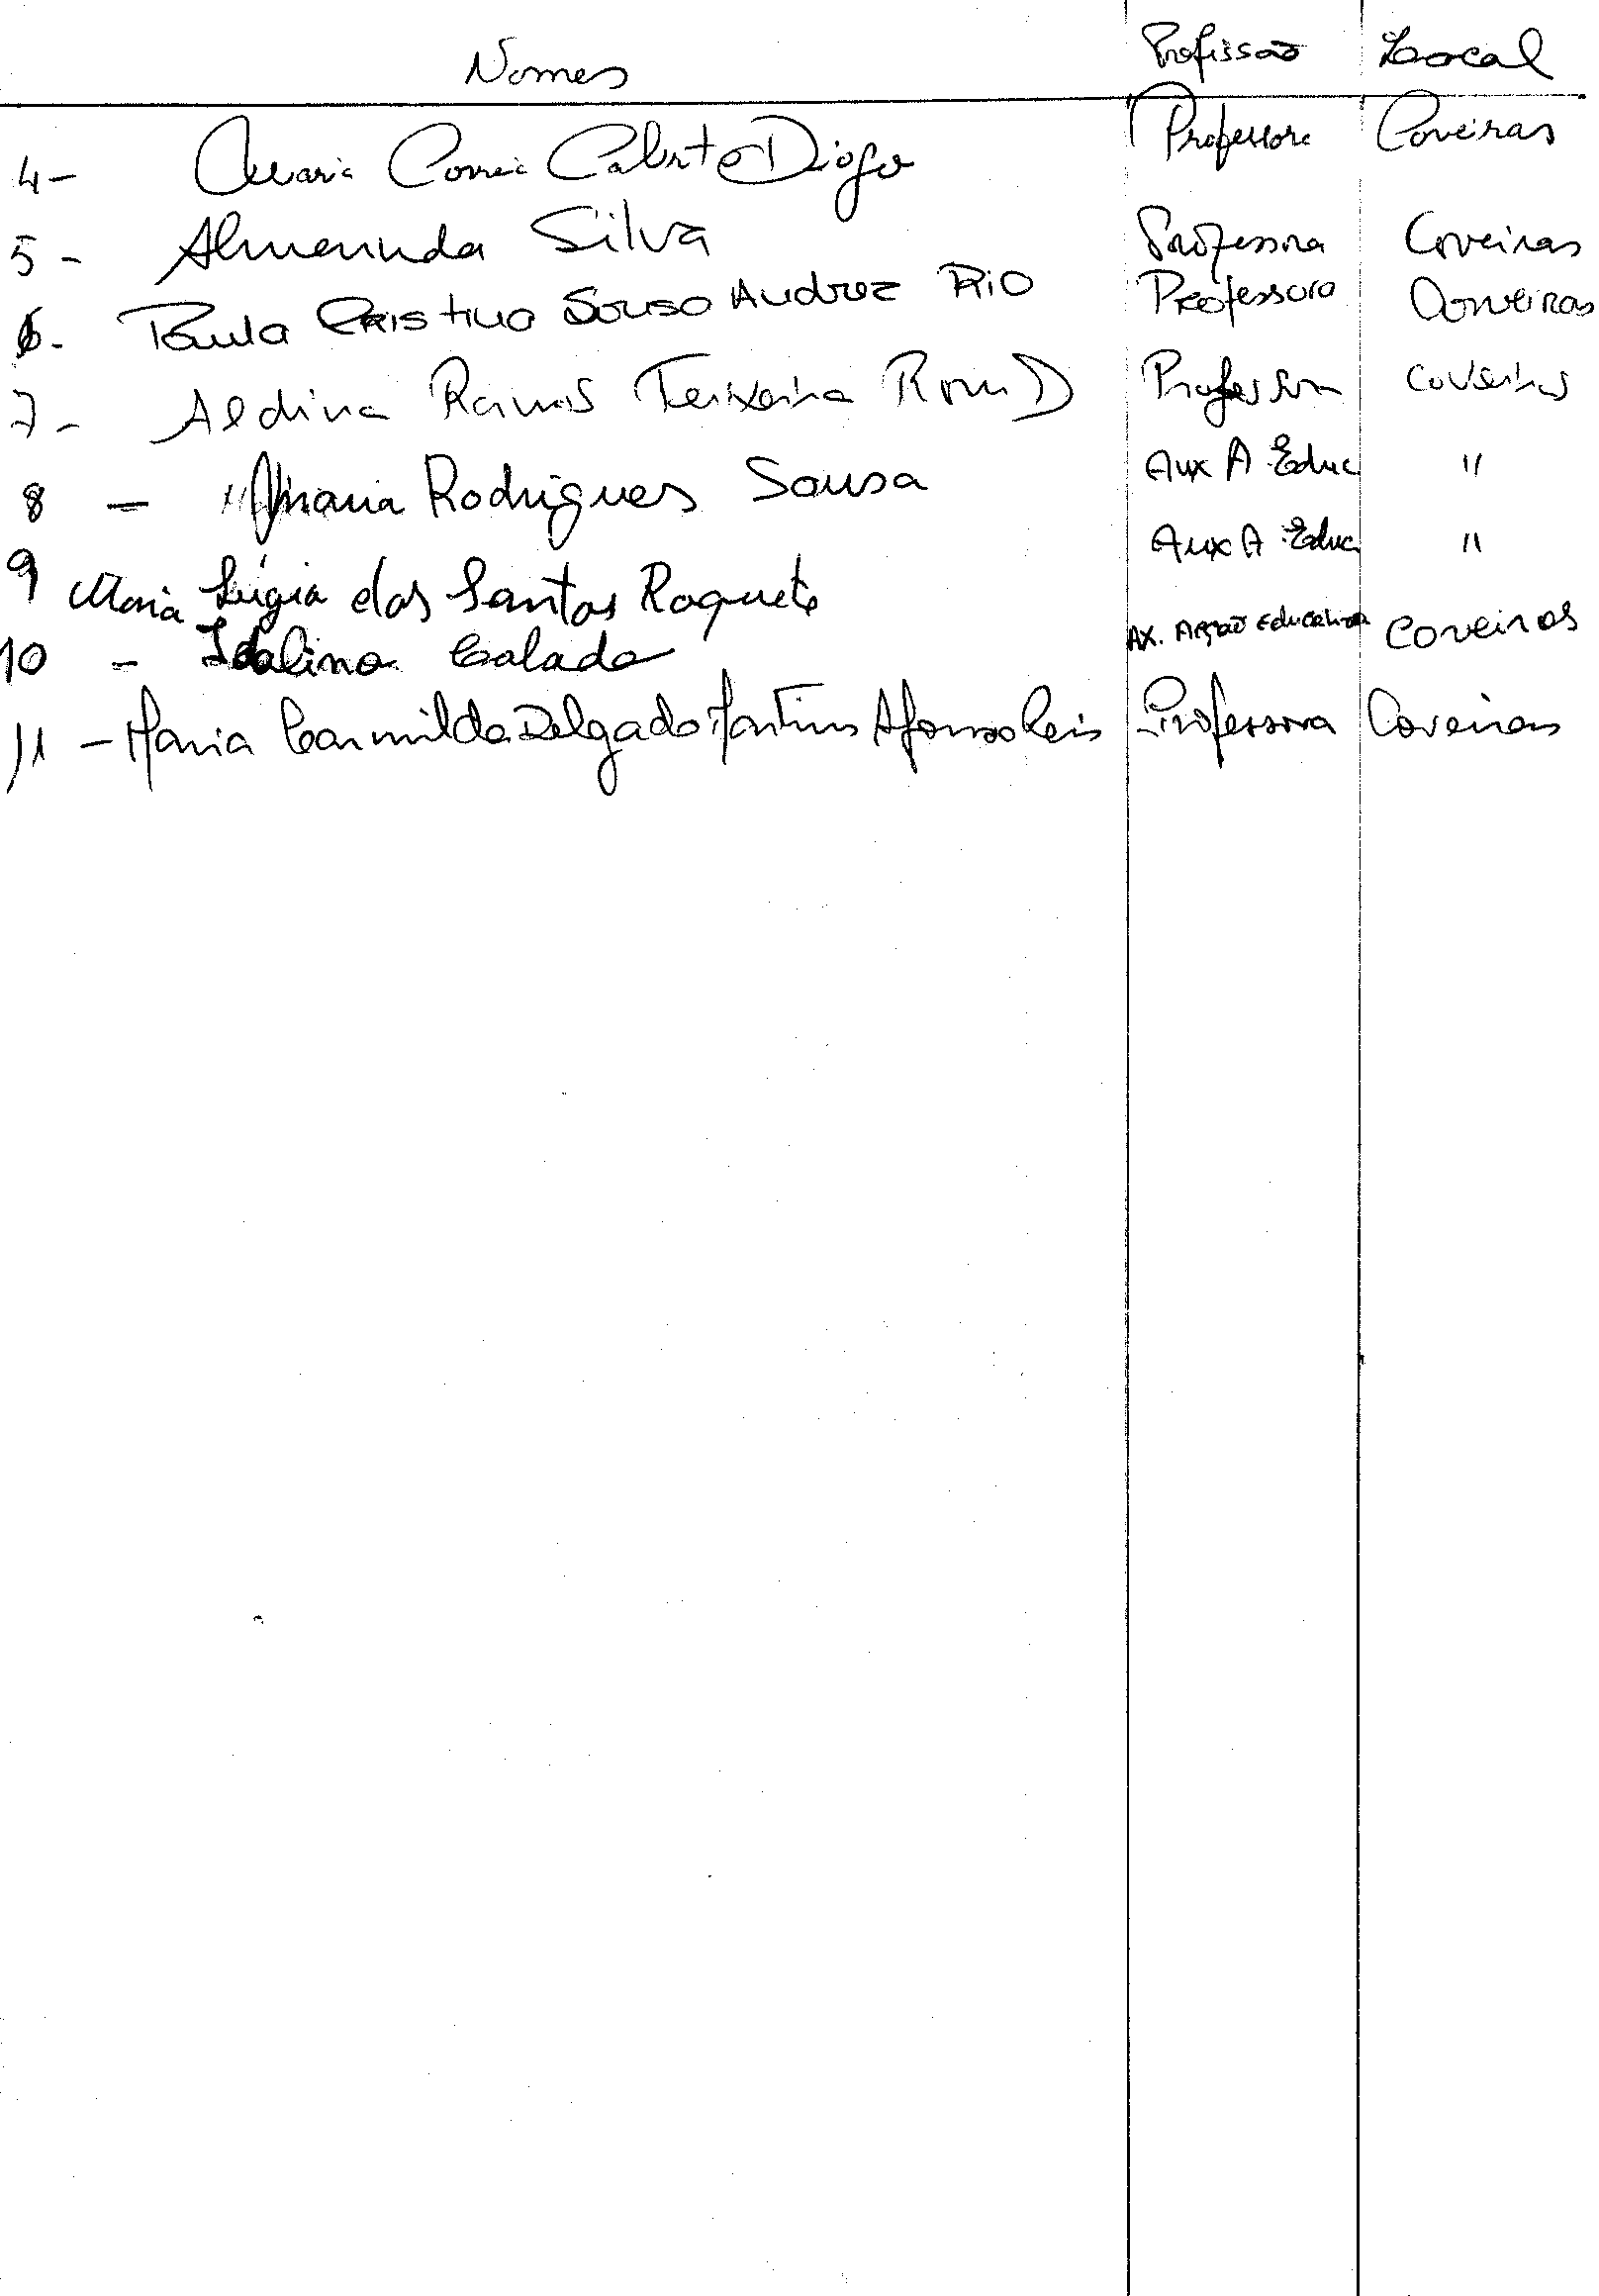 Nomes Profissão Local
4- Maria Correia Calisto Diogo Professora Coveiras
5- Almerinda Silva Professora Coveiras
6- Paula Cristina Sousa Andrez Rio Professora Coveiras
7- Aldina Ramos Teixeira Professora Coveiras
8 - Maria Rodrigues Sousa Aux A. Educ "
9 Maria Lígia dos Santos Roquete Aux A. Educ "
10 - Idalina Calado AX. Acção Educativa Coveiros
11 - Maria Carmilda Delgado Martins Afonso Reis Professora Coveiras